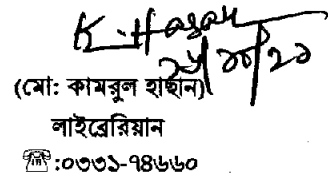 K. Hasan
(মো: কামরুল হাছান)
লাইব্রেরিয়ান
☎:০৩৩১-৭৪৬৬০